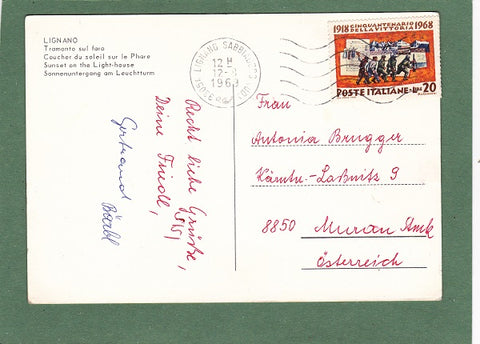 LIGNANO
Tramonto sul faro
Coucher du soleil sur le Phare
Sunset on the Light-house
Sonnenuntergang am Leuchtturm
LIGNANO SABBIADORO
12
12-
196
1918 CINQUANTENARIO 1968
DELLA VITTORIA
POSTE ITALIANE L. 20
Recht liebe Grüße,
Deine Friedl,
Gertraud
Frau
Antonia Brugger
Kärntn-Laßnitz 9
8850 Murau Stmk
Österreich